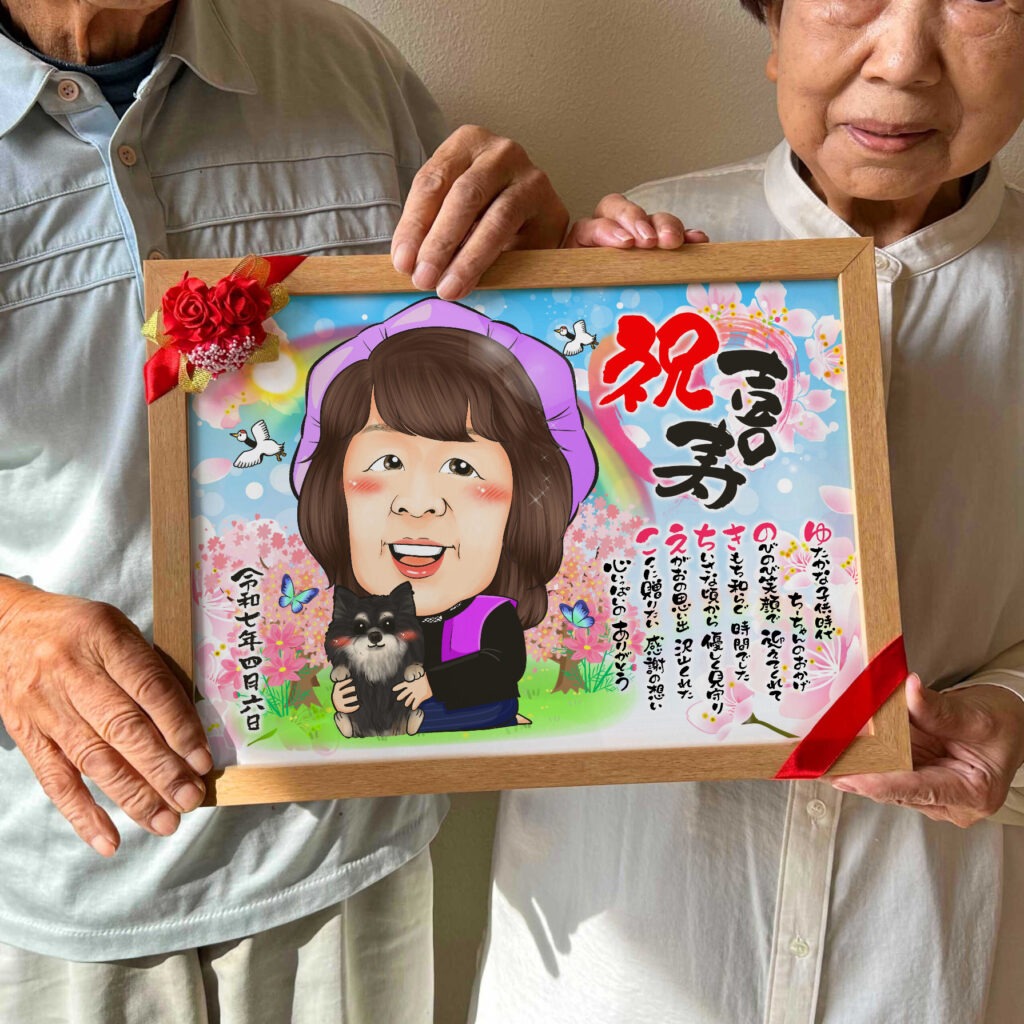 祝
喜寿
ゆたかな子供時代 ちーちゃんのおかげ
のびのび笑顔で 迎えてくれて
きもち和らぐ 時間でした
ちいさな頃から 優しく見守り
えがおの思い出 沢山くれた
ここに贈りたい 感謝の想い
心いっぱいの ありがとう
令和七年四月六日